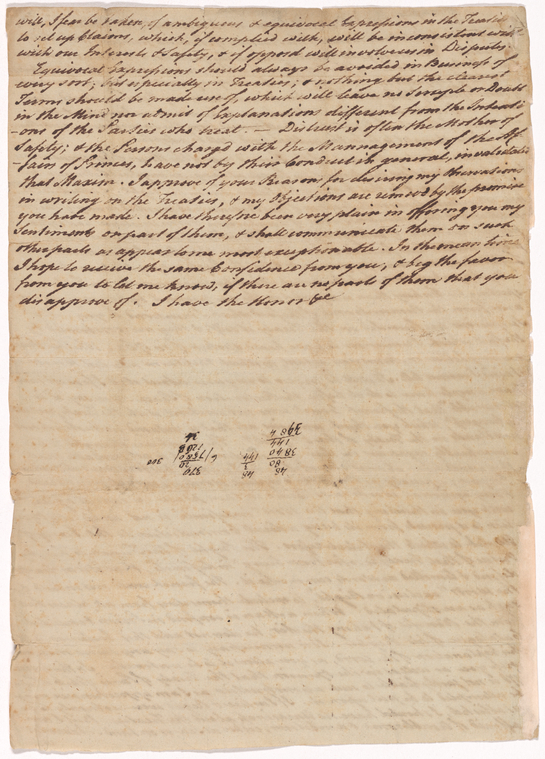 will, I fear be taken, of ambiguous & equivocal Expressions in the Treaties
to set up Claims, which, if complied with, will be inconsistent with
with our Interests & Safety, & if opposed will involve us in Disputes.
Equivocal Expressions should always be avoided in Business of
every sort; but especially in Treaties; & nothing but the clearest
Terms should be made use of, which will leave no Scruple or Doubt
in the Mind nor admit of Explanations different from the Intenti-
-ons of the Parties who treat. — Distrust is often the Mother of
Safety; & the Persons charged with the Mannagement of the Af-
-fairs of Princes, have not by their Conduct in general, invalidated
that Maxim. I approve of your Reasons for desiring my Observations
in writing on the Treaties, & my Objections are removed by the promise
you have made. I have therefore been very plain in offering you my
Sentiments on part of them, & shall communicate them on such
other parts as appear to me most exceptionable. In the mean time
I hope to receive the same Confidence from you, & beg the favor
from you to let me know, if there are no parts of them that you
disapprove of. I have the Honor &c
48
80
3840
144
3984
48
3
144
370
20
300